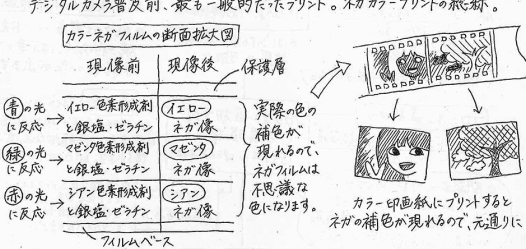 デジタルカメラ普及前、最も一般的だったプリント。ネガカラープリントの総称。
カラーネガフィルムの断面拡大図
現像前 現像後
保護層
青の光に反応
イエロー色素形成剤と銀塩・ゼラチン
イエローネガ像
緑の光に反応
マゼンタ色素形成剤と銀塩・ゼラチン
マゼンタネガ像
赤の光に反応
シアン色素形成剤と銀塩・ゼラチン
シアンネガ像
フィルムベース
実際の色の
補色が
現れるので、
ネガフィルムは
不思議な
色になります。
カラー印画紙にプリントすると
ネガの補色が現れるので、元通りに